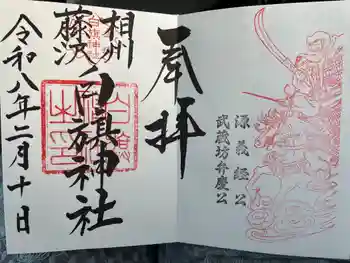 奉拝
源義經公
武蔵坊弁慶公
相州
藤沢
白旗神社
令和八年二月十日
白旗神社